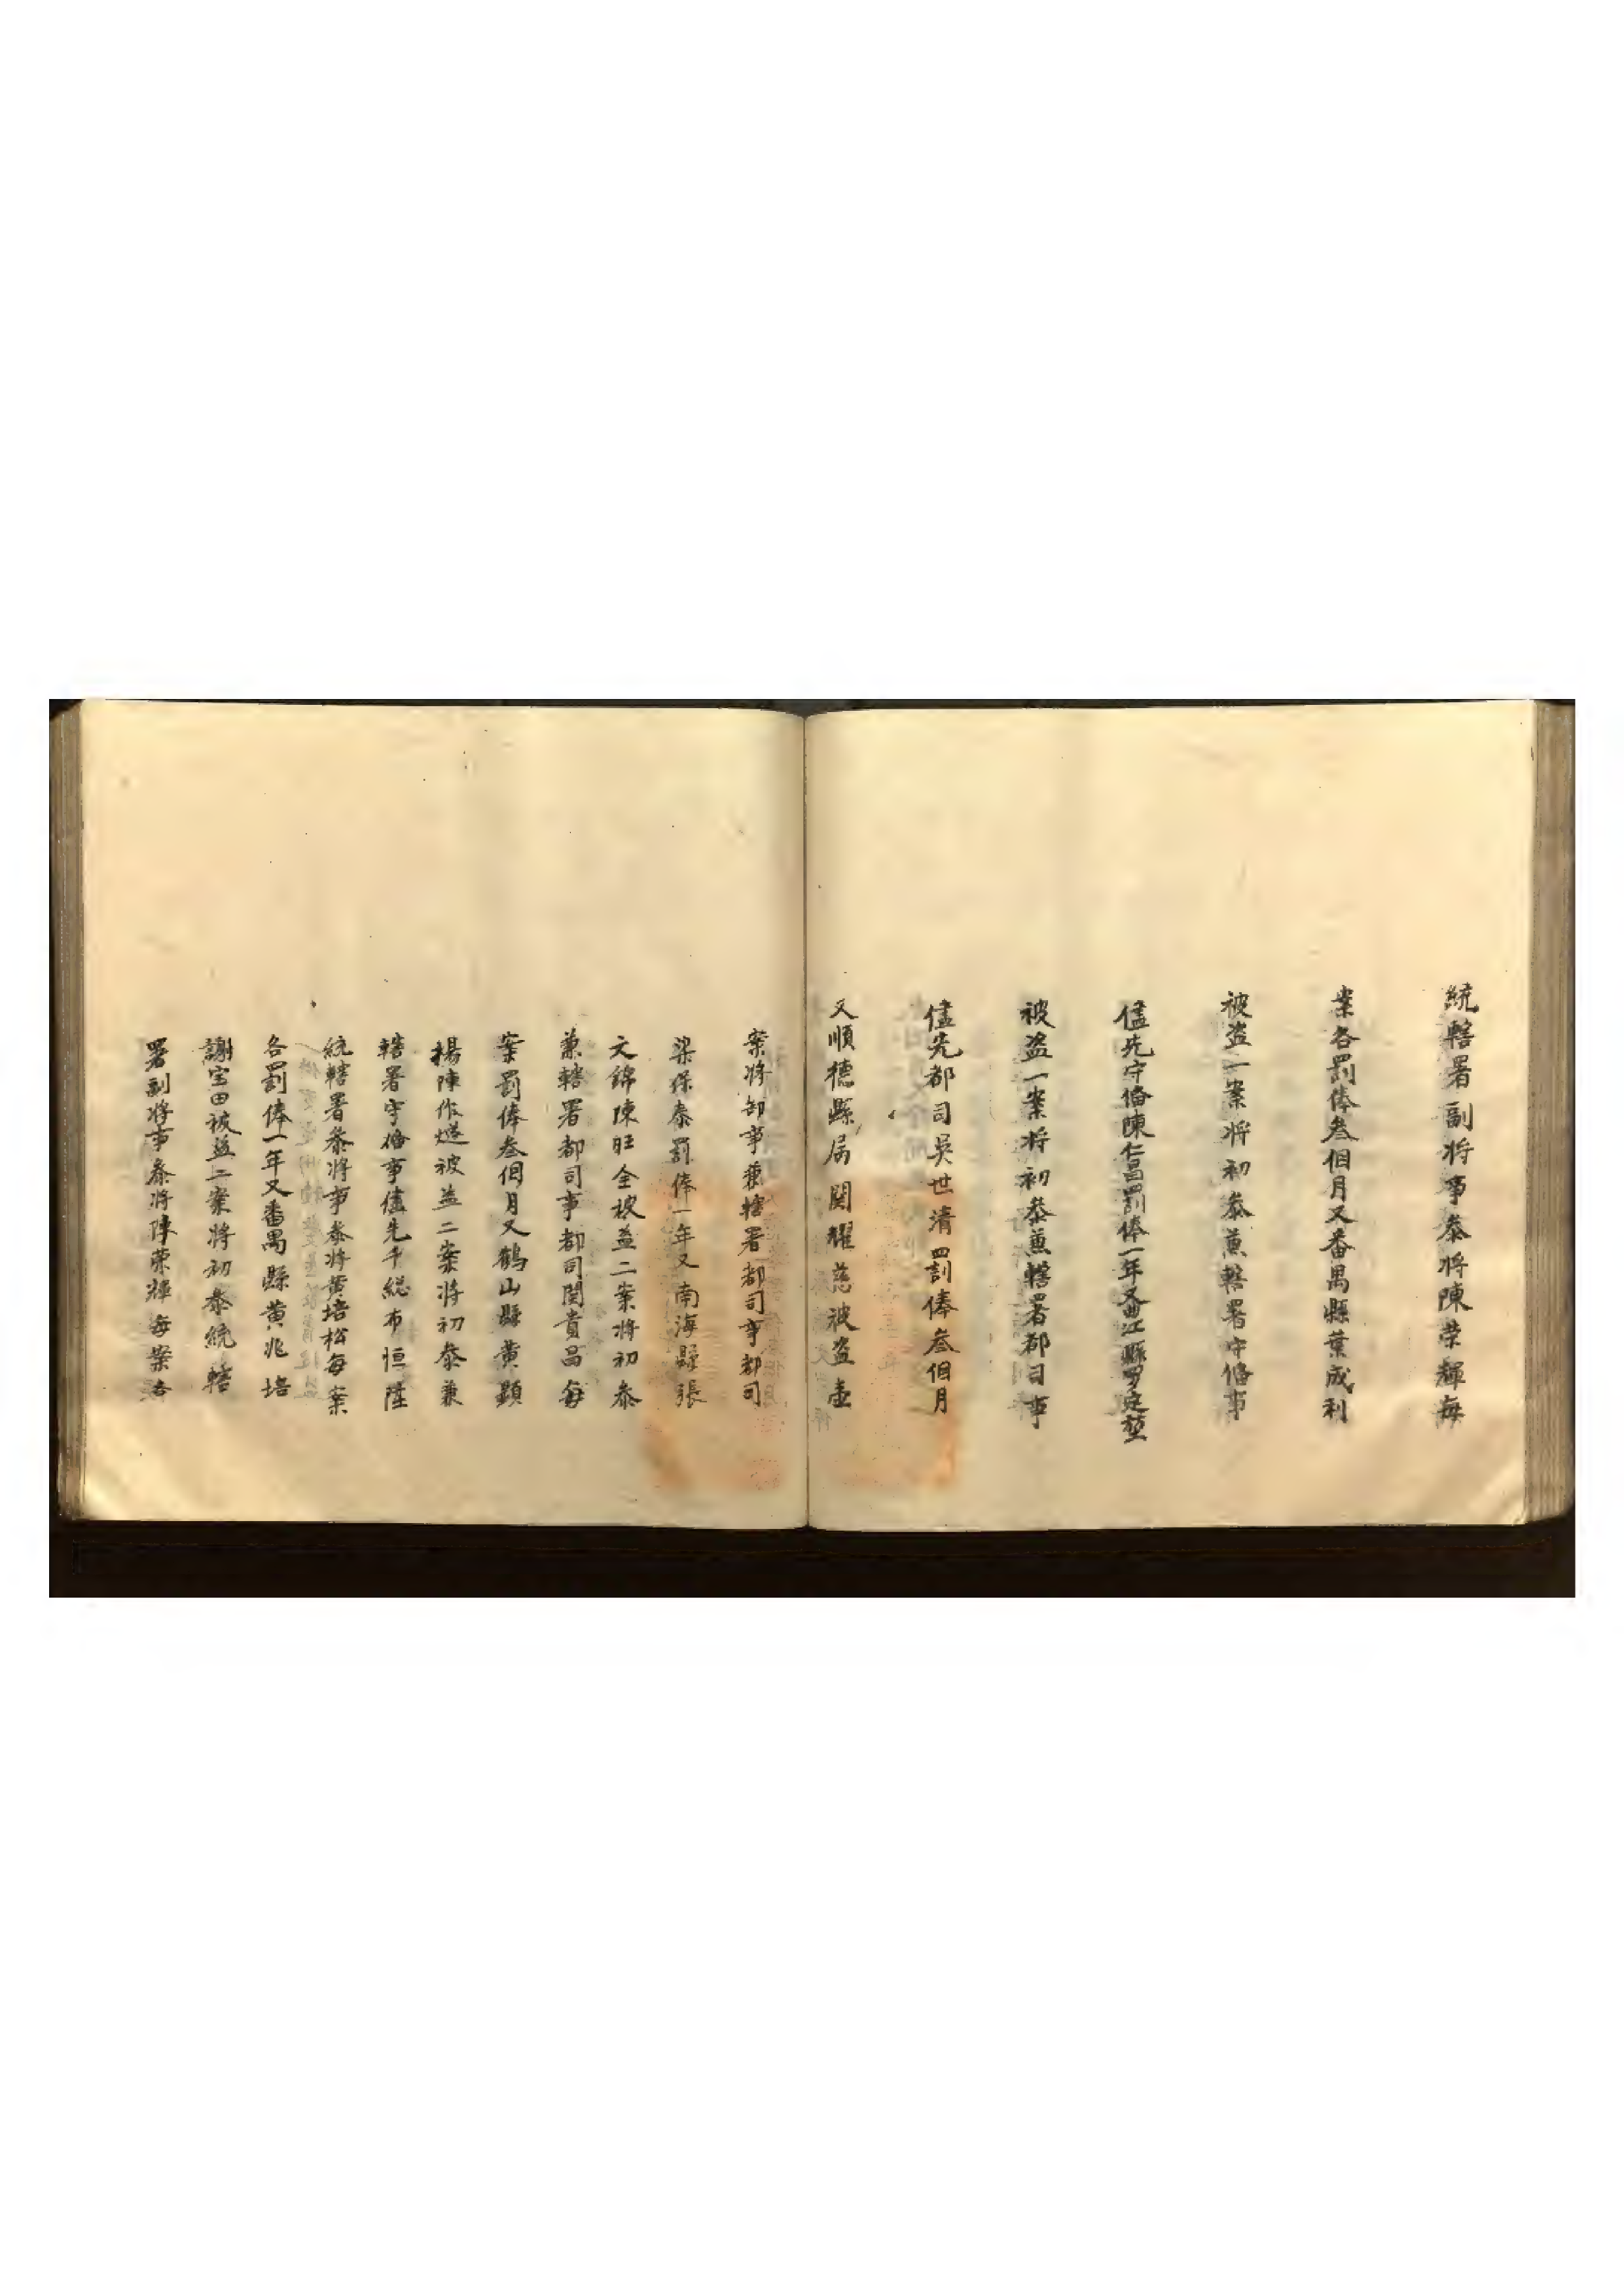 統轄署副将事叅将陳荣輝每
案各罰俸叁佪月又番禺縣葉成利
被盗一案将初叅兼轄署守俻事
儘先守俻陳仁昌罰俸一年又曲江縣罗廷堃
被盗一案将初叅兼轄署都司事
儘先都司吳世清罰俸叁佪月
又順德縣局関耀慈被盗壹
案將卸事兼轄署都司事都司
梁保泰罰俸一年又南海縣張
文錦陳旺全被盗二案將初叅
兼轄署都司事都司関貴昌每
案罰俸叁佪月又鶴山縣黄顕
揚陳作燧被盗二案將初叅兼
轄署守俻事儘先千総布恒陞
統轄署叅将事叅将黄培松每案
各罰俸一年又番禺縣黄兆培
謝宝田被盗二案將初叅統轄
署副將事叅將陳荣輝每案各